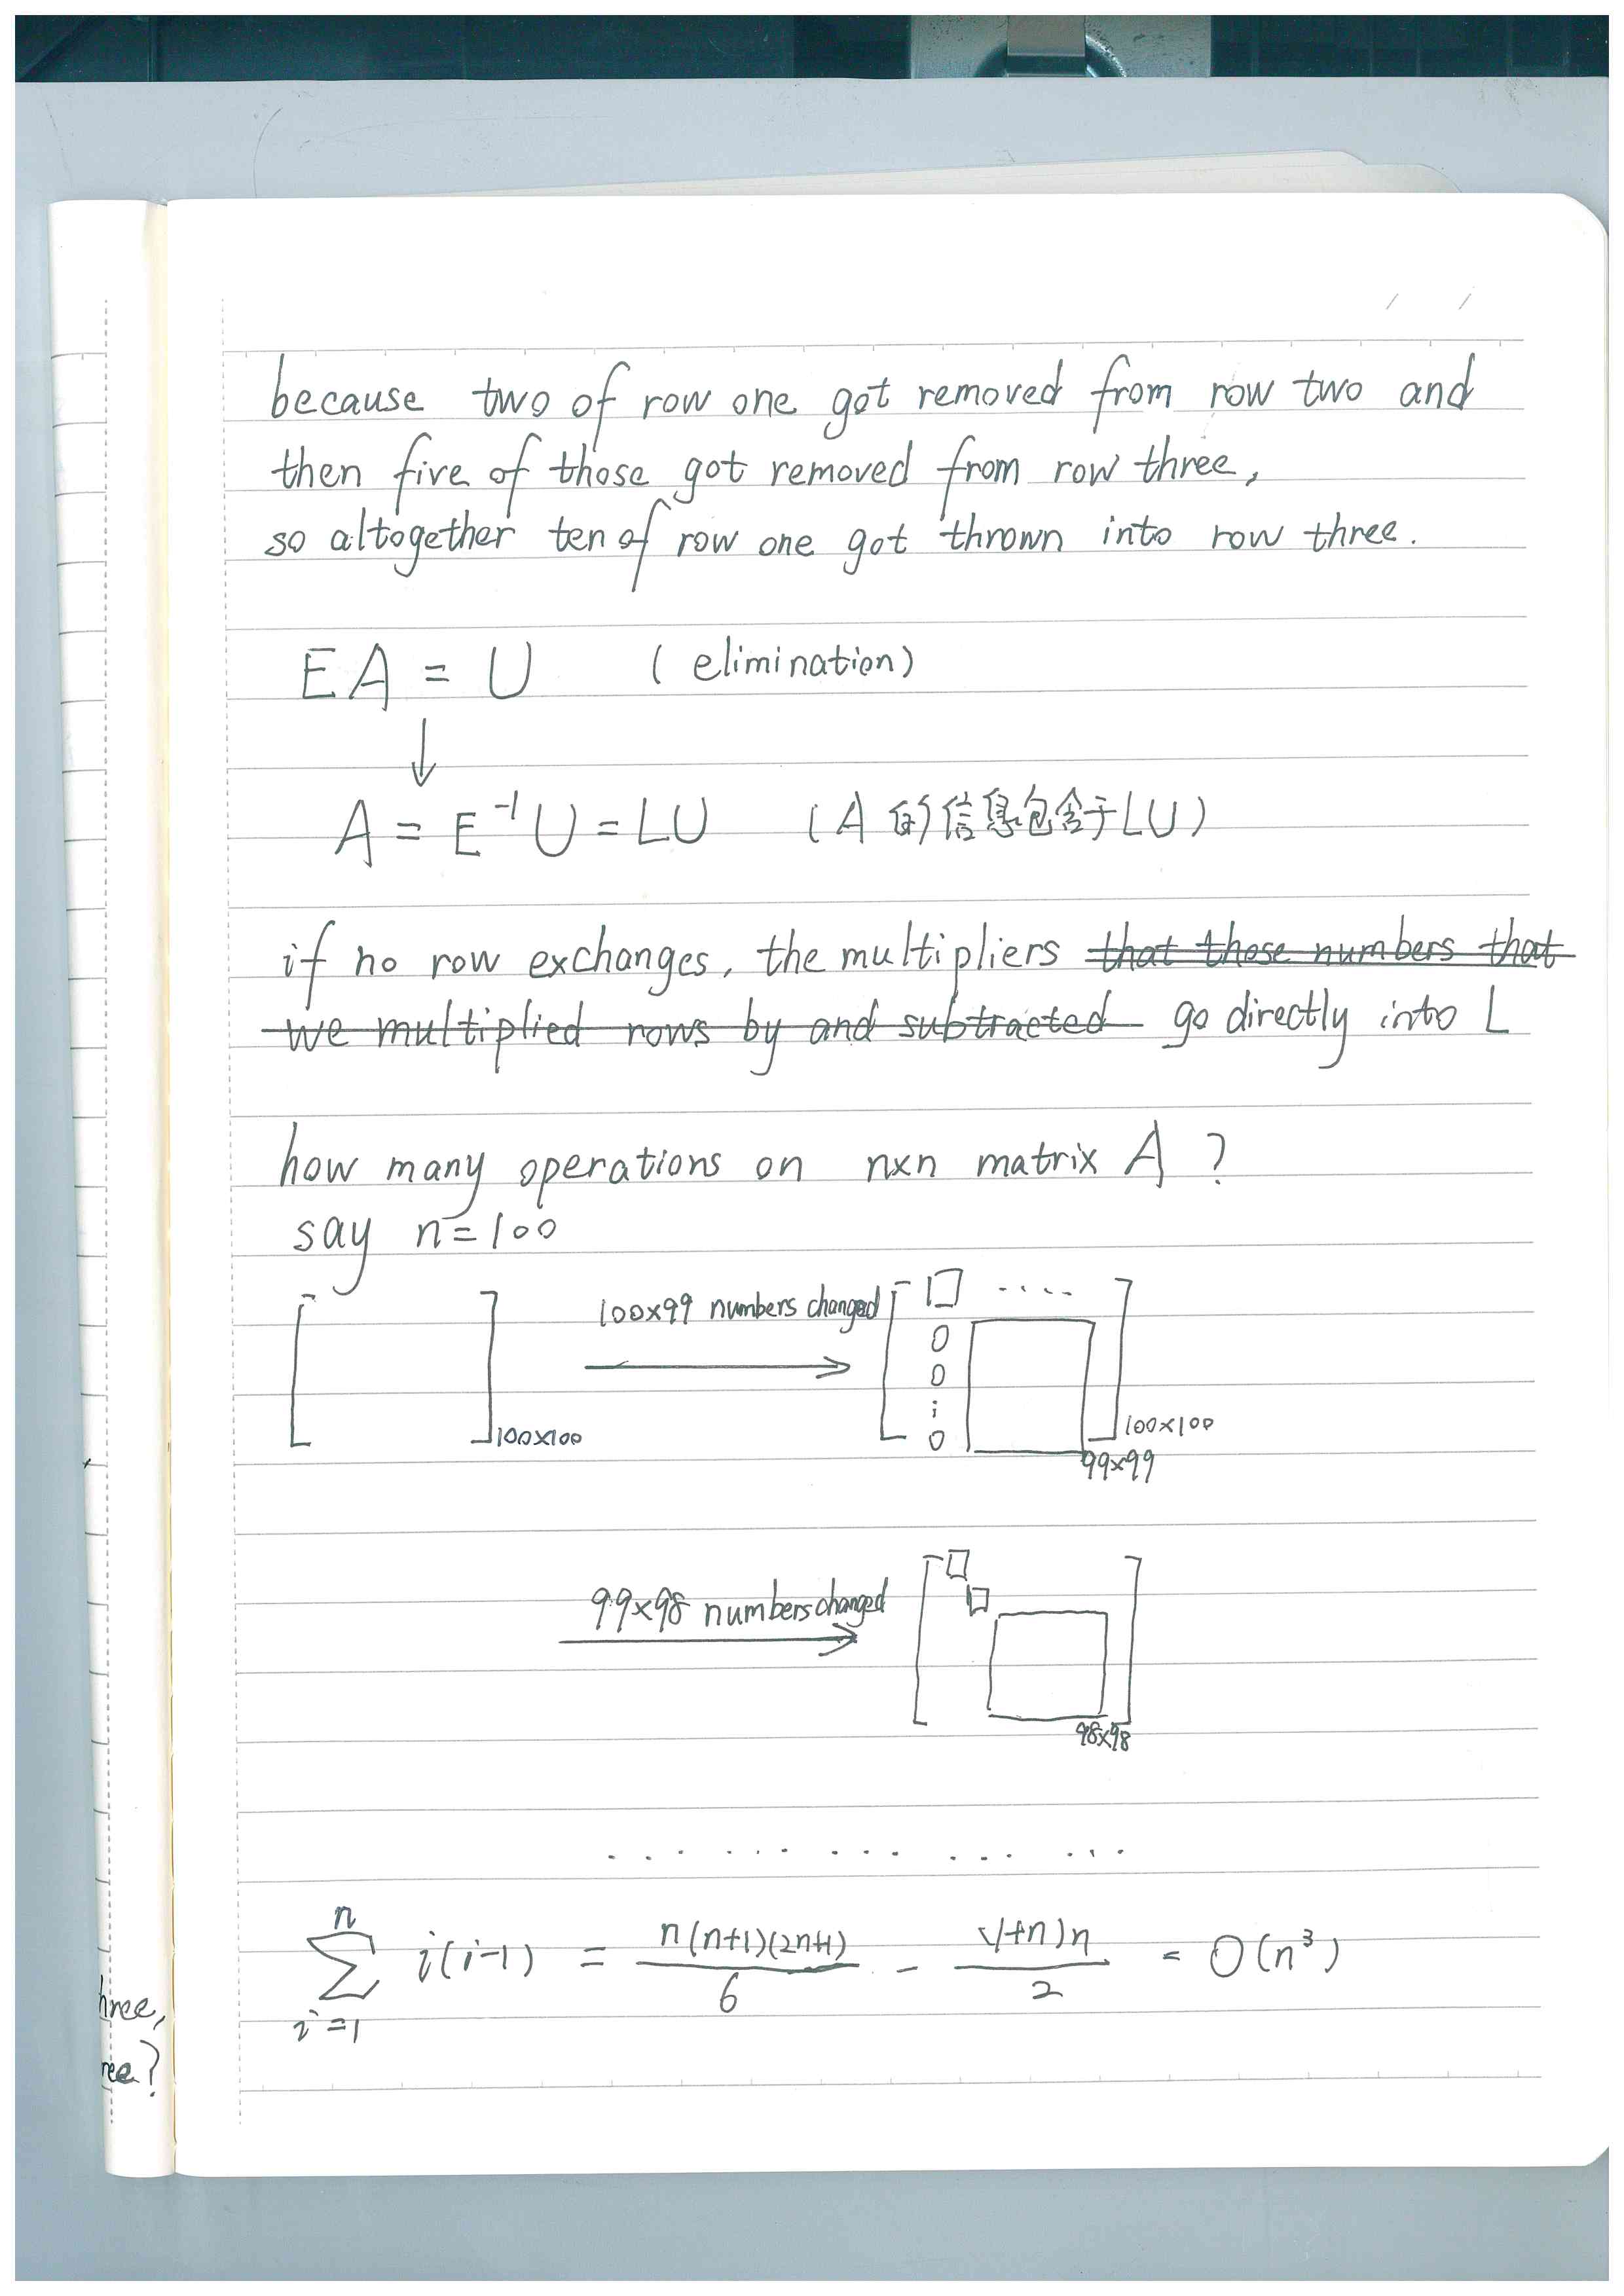 because two of row one got removed from row two and
then five of those got removed from row three,
so altogether ten of row one got thrown into row three.
EA = U ( elimination)
↓
A = E⁻¹U = LU (A 的信息包含于LU)
if no row exchanges, the multipliers that those numbers that
we multiplied rows by and subtracted go directly into L
how many operations on n×n matrix A ?
say n=100
100×99 numbers changed
0
0
0
100×100
100×100
99×99
99×98 numbers changed
98×98
. . . . . . . . . . . . . . .
n
∑ i(i-1) = n(n+1)(2n+1)/6 - (1+n)n/2 = O(n³)
i=1
hree,
ree?